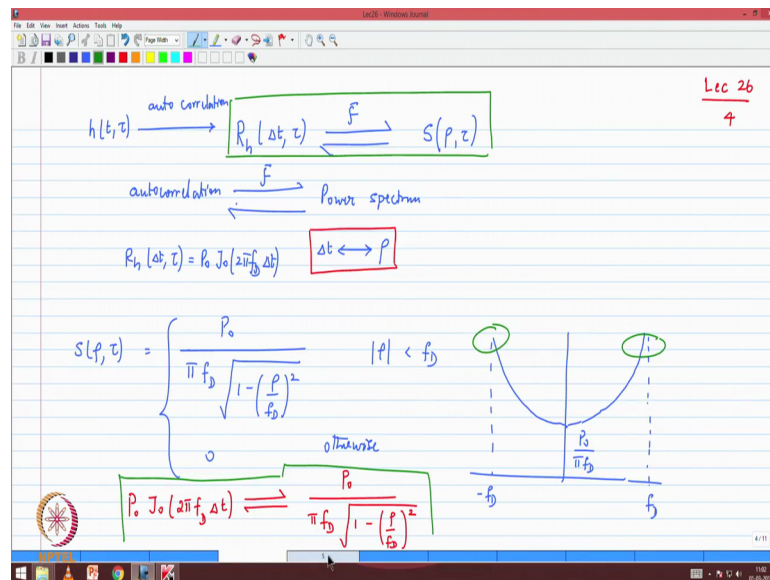 Lec26 - Windows Journal
File Edit View Insert Actions Tools Help
Page Width
B I
Lec 26
4
auto correlation
h(t, τ) ⟶ R_h (Δt, τ) ⇌ S(ρ, τ)
F
F
autocorrelation ⇌ Power spectrum
R_h (Δt, τ) = P₀ J₀ (2π f_D Δt)
Δt ⟷ ρ
S(ρ, τ) = { P₀ / (π f_D √(1 - (ρ/f_D)²)) |ρ| < f_D
0 otherwise
P₀ / (π f_D)
-f_D
f_D
P₀ J₀ (2π f_D Δt) ⇌ P₀ / (π f_D √(1 - (ρ/f_D)²))
NPTEL
4/11
5
11:02